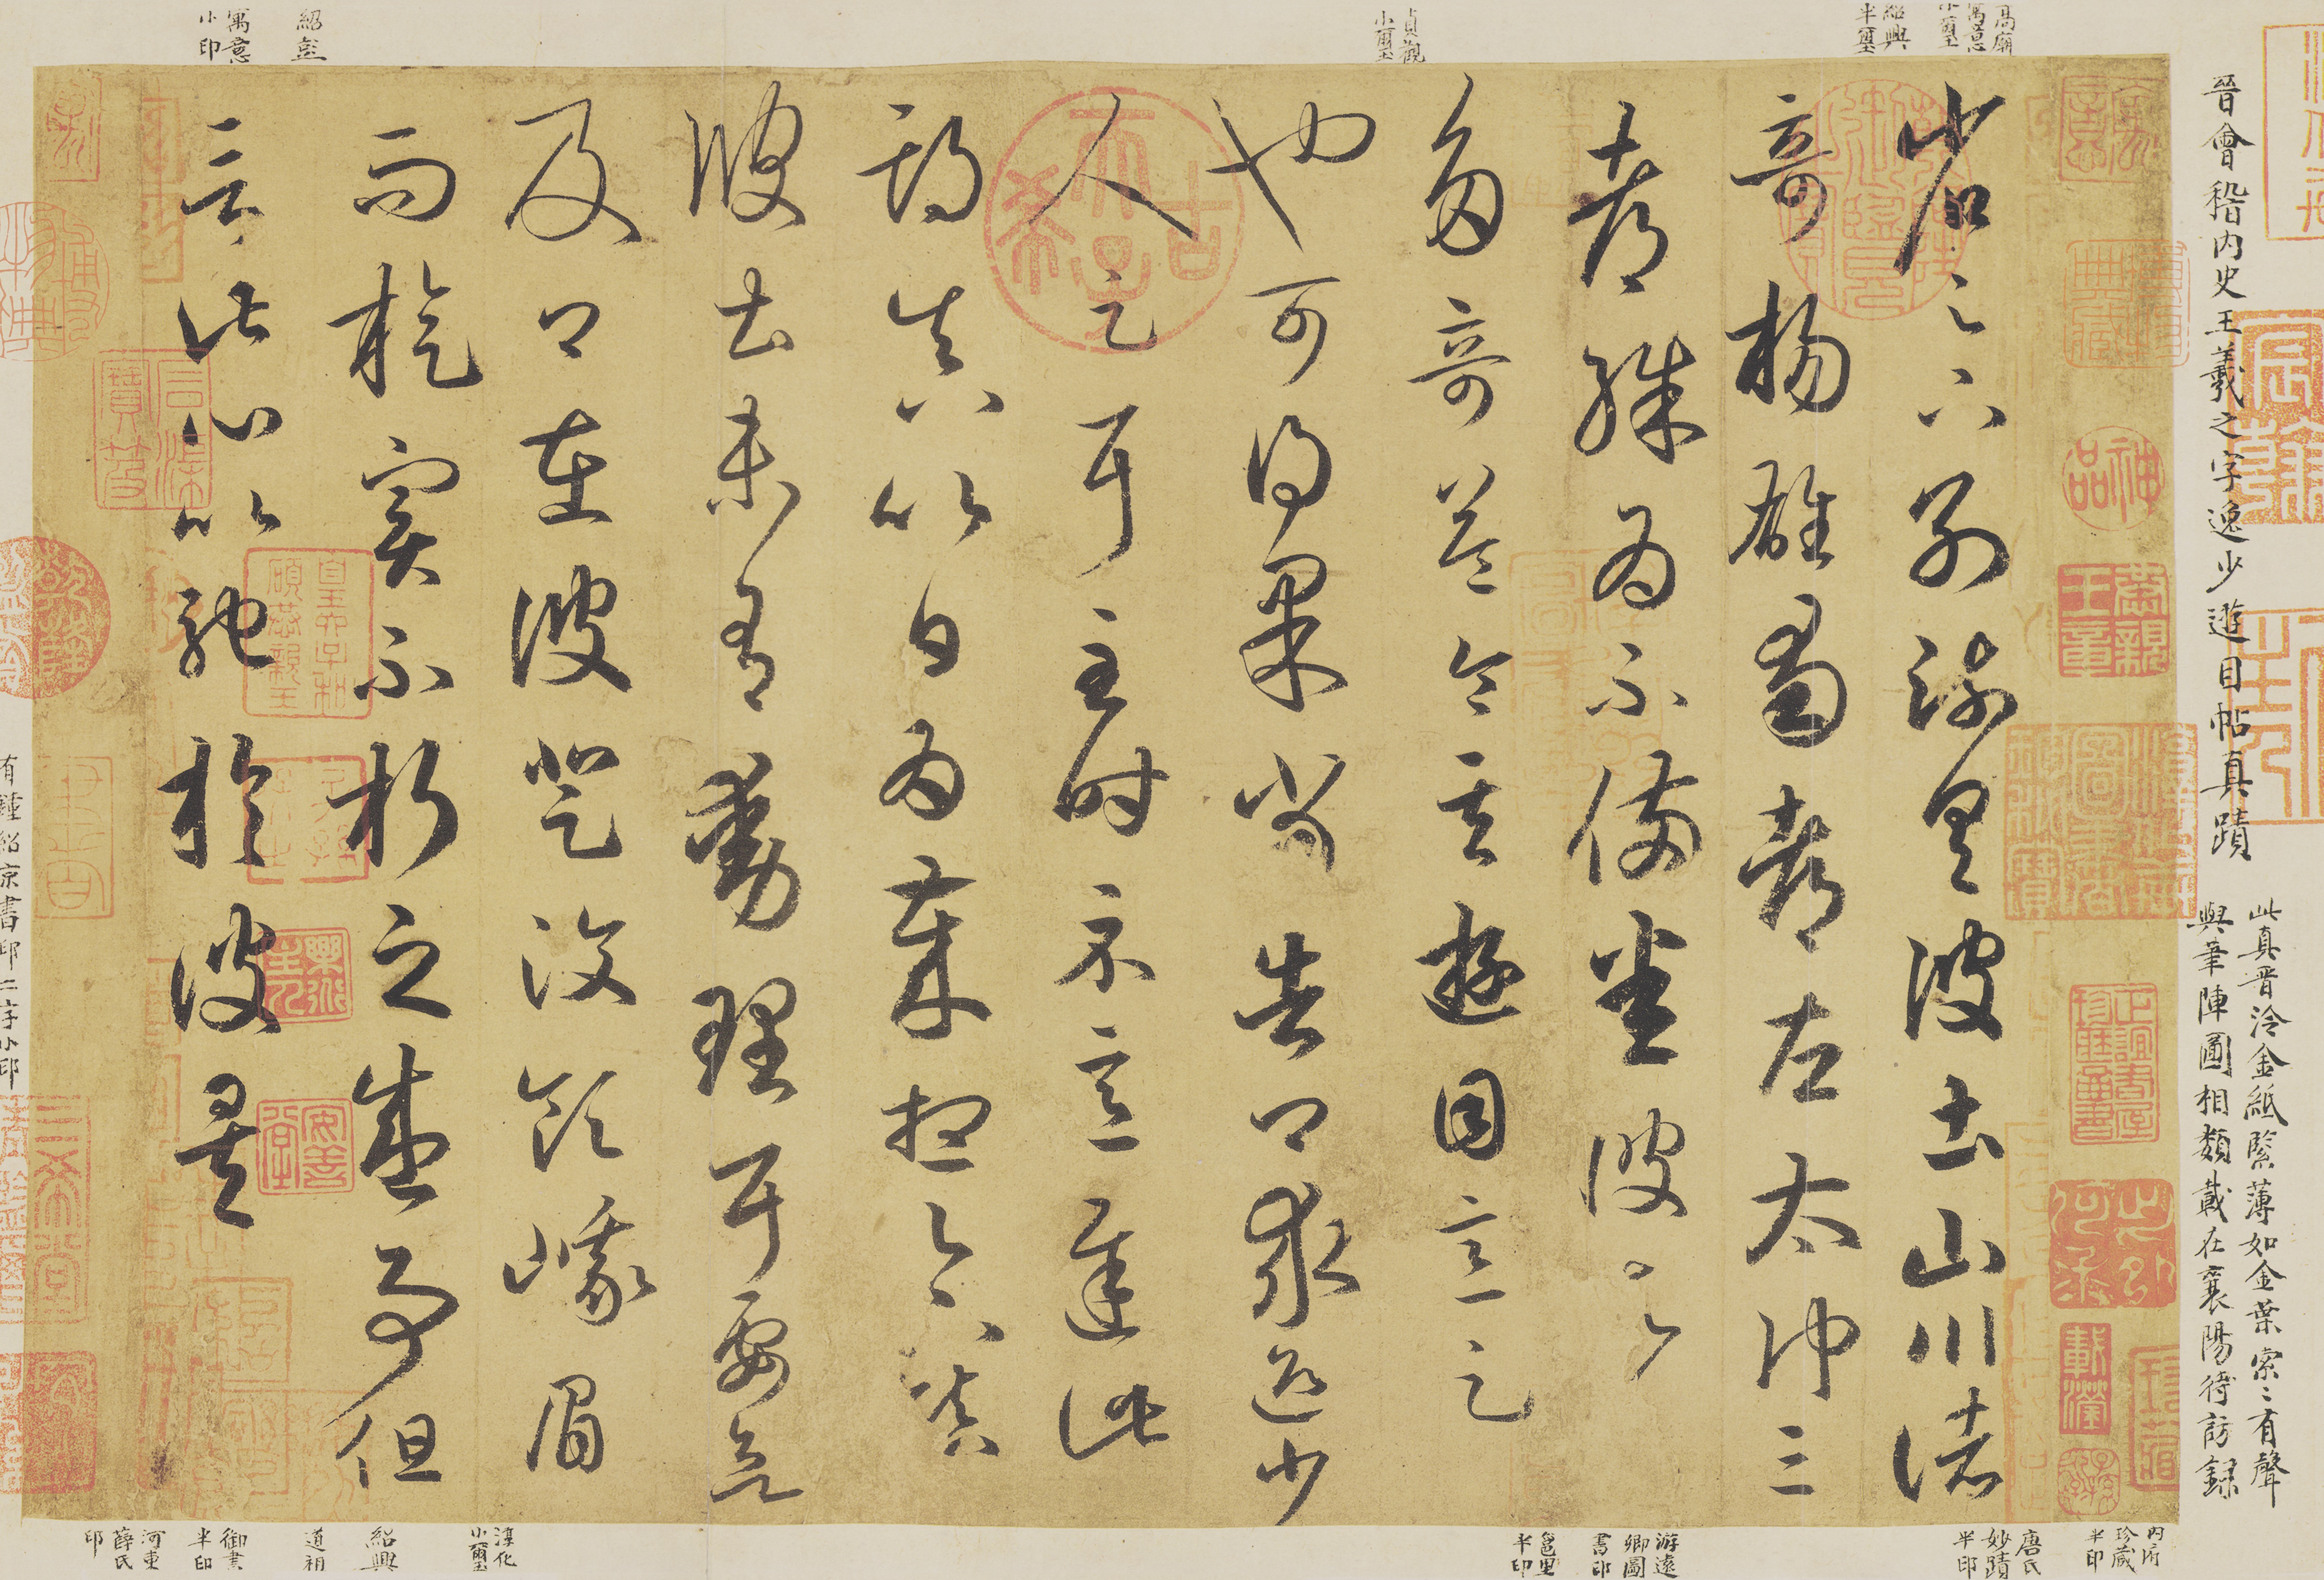 晉會稽內史王羲之字逸少遊目帖真蹟
此真晉泠金紙緊薄如金葉索〻有聲
與筆陣圖相類載在襄陽待訪録
高廟
寓意
小璽
紹興
半璽
貞觀
小璽
紹彭
寓意
小印
省足下別疏具彼土山川諸
奇楊雄蜀都左太沖三
都殊為不備悉彼故為
多奇益令其遊目意足
也可得果當告卿求迎少
人足耳至時示意遲此
期真以日為歲想足下鎮
彼土未有動理耳要欲
及卿在彼登汶領峨眉
而旋實不朽之盛事但
言此心以馳於彼矣
內府
珍蔵
半印
唐氏
妙蹟
半印
游遠
卿圖
書印
邕里
半印
淳化
小璽
紹興
道祖
御書
半印
河東
薛氏
印
有鍾紹京書印二字小印
神品
古希天子
三希堂